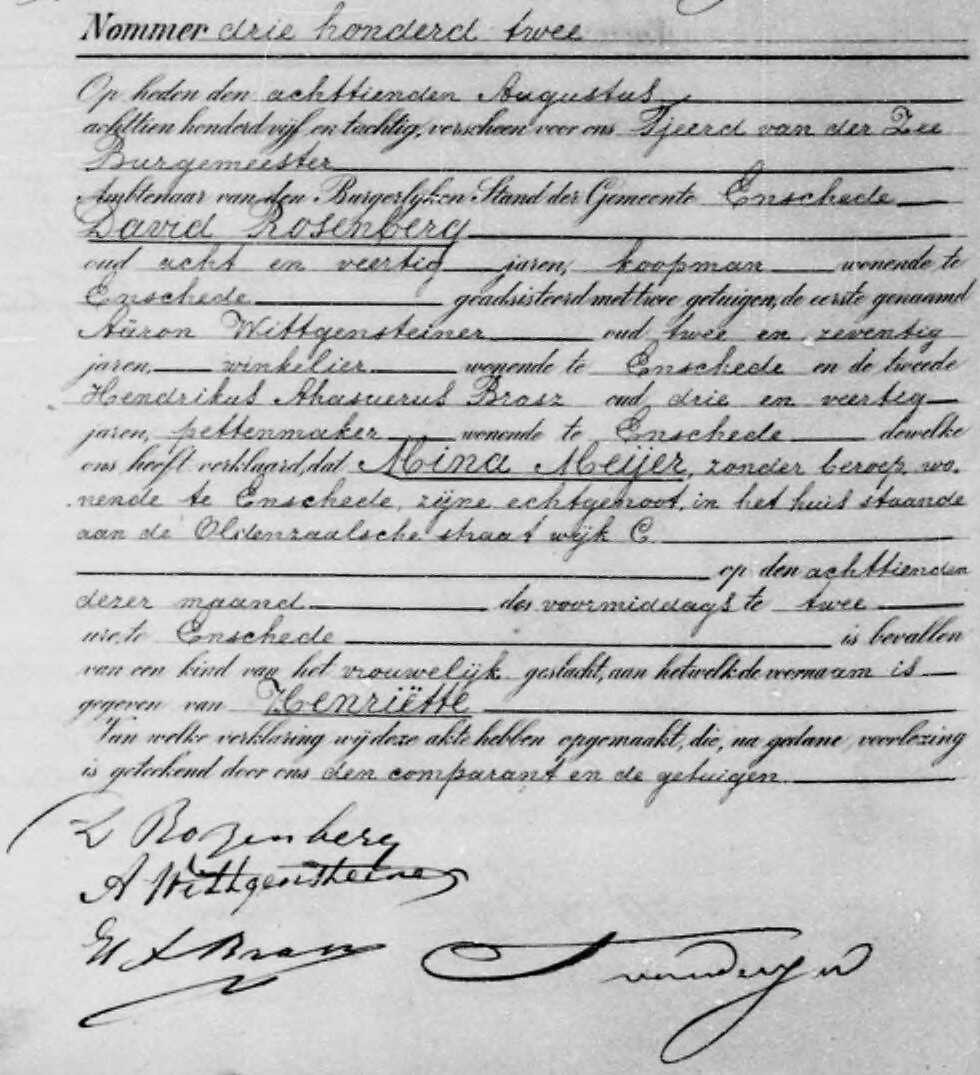 Nommer drie honderd twee
Op heden den achttienden Augustus
achttien honderd vijf en tachtig, verscheen voor ons Tjeerd van der Zee
Burgemeester
Ambtenaar van den Burgerlyken Stand der Gemeente Enschede
David Rosenberg
oud acht en veertig jaren, koopman wonende te
Enschede geadsisteerd met twee getuigen, de eerste genaamd
Aäron Wittgensteiner oud twee en zeventig
jaren, winkelier wonende te Enschede en de tweede
Hendrikus Ahasuerus Brasz oud drie en veertig
jaren, pettenmaker wonende te Enschede dewelke
ons heeft verklaard, dat Mina Meijer, zonder beroep, wo-
nende te Enschede, zijne echtgenoot, in het huis staande
aan de Oldenzaalsche straat wijk C.
op den achttienden
dezer maand des voormiddags te twee
ure, te Enschede is bevallen
van een kind van het vrouwelijk geslacht, aan hetwelk de voornaam is
gegeven van Henriëtte
Van welke verklaring wy deze akte hebben opgemaakt, die, na gedane voorlezing
is geteekend door ons den comparant en de getuigen.
Rozenberg
A Wittgensteiner
H A Brasz